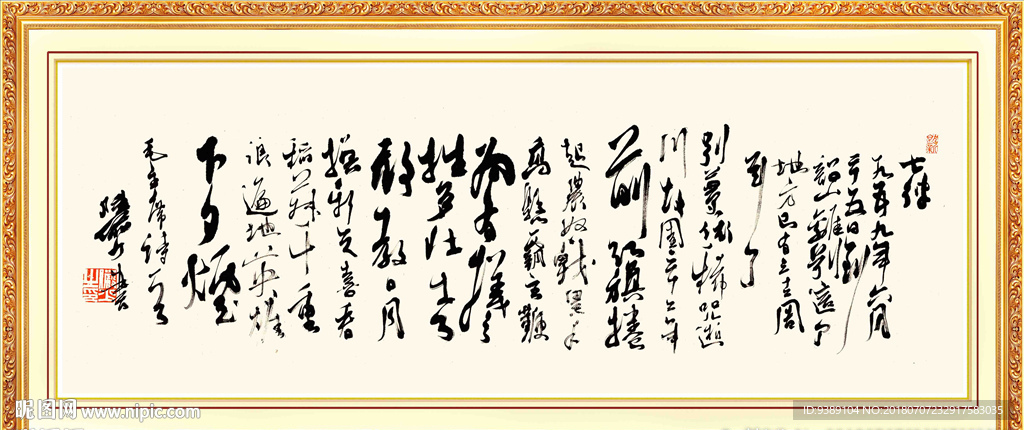 七律
一九五九年六月
二十五日到
韶山離別這个
地方已有三十二周
年了
別夢依稀咒逝
川故園三十二年
前紅旗捲
起農奴戟黑手
高懸霸主鞭
為有犧
牲多壯志
敢教日月
換新天喜看
稻菽千重
浪遍地英雄
下夕煙
毛主席詩一首
書
昵图网 www.nipic.com
ID:9389104 NO:20180707232917583035